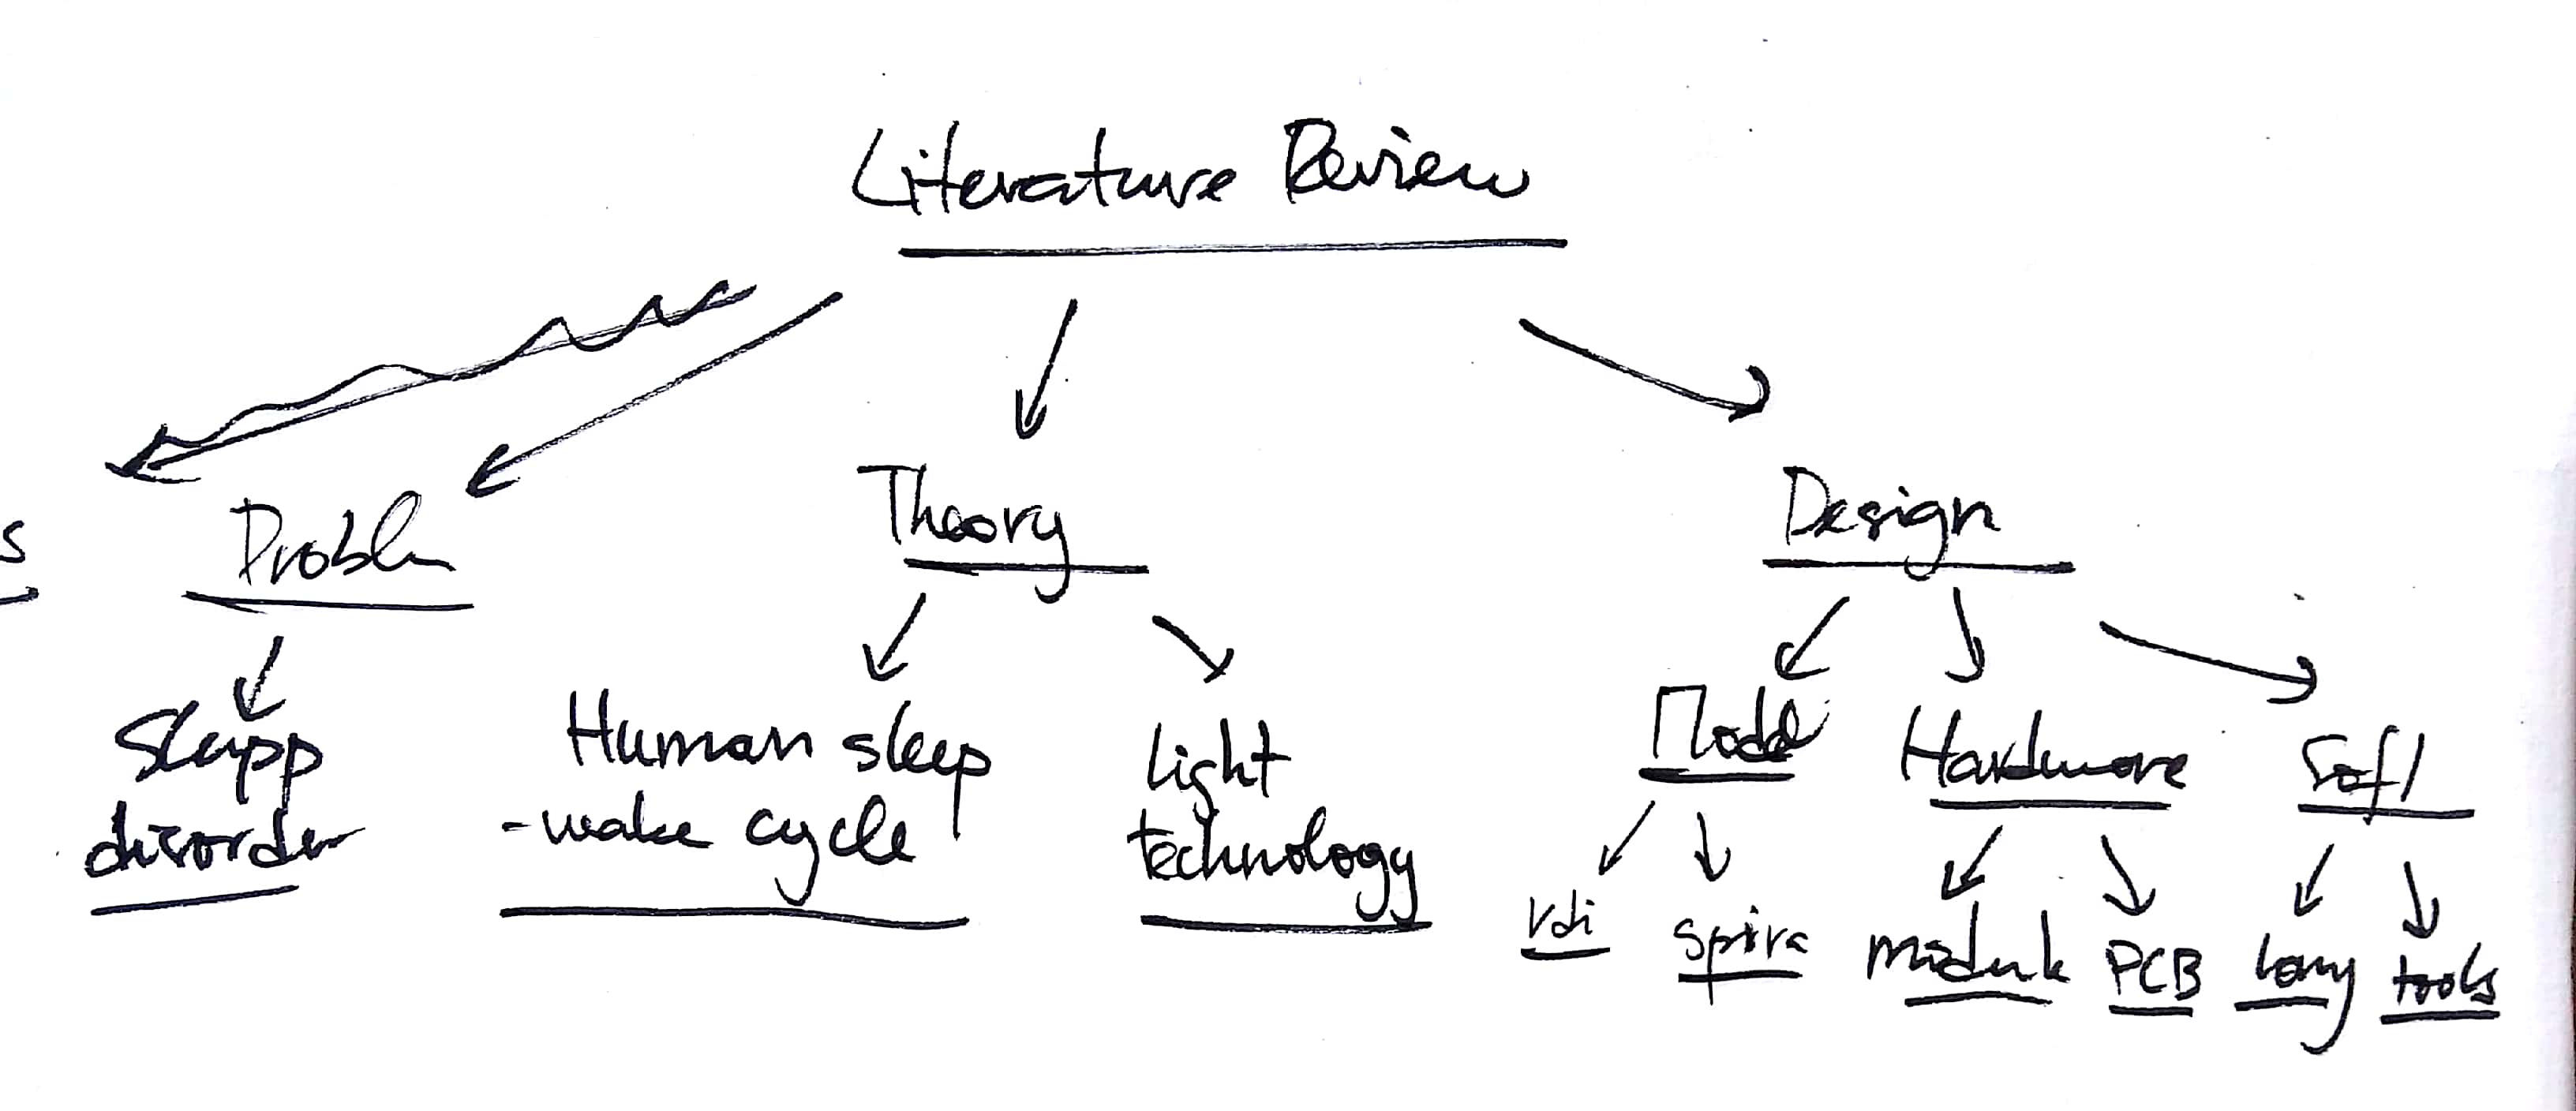 Literature Review
s
Problm
Theory
Design
Sleepp
disorder
Human sleep
-wake cycle
light
technology
Model
Hardware
Soft
Vdi
spira
module
PCB
lang
tools